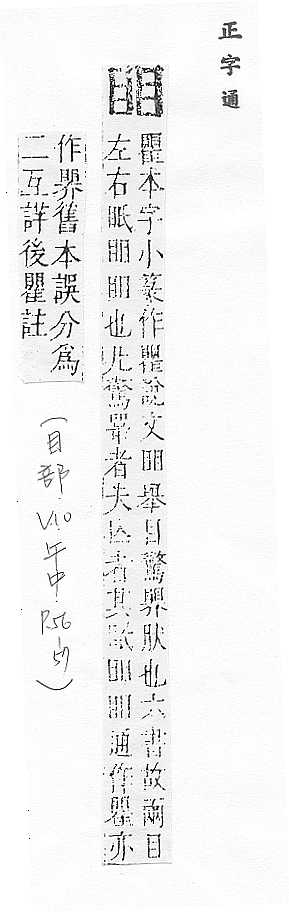 正字通
䀠
瞿本字小篆作瞿說文䀠舉目驚界狀也六書故兩目
左右眂䀠䀠也凡驚者失者其䀠䀠通作瞿亦
作界舊本誤分為
二互詳後瞿註
(目部 V.10 午中 P.56-57)